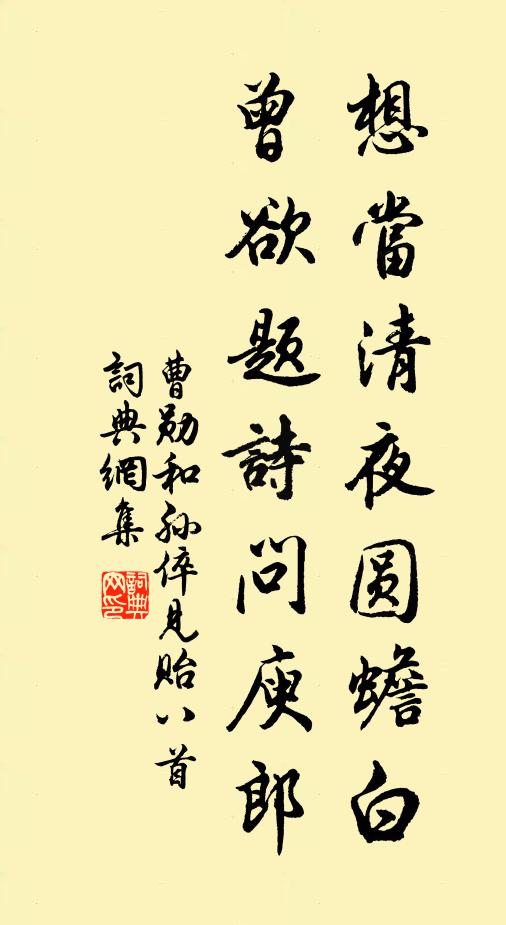 想當清夜圆蟾白
曾欲題詩問庾郎
曹勛和孙倅見貽八首
詞典網集
詞典网印